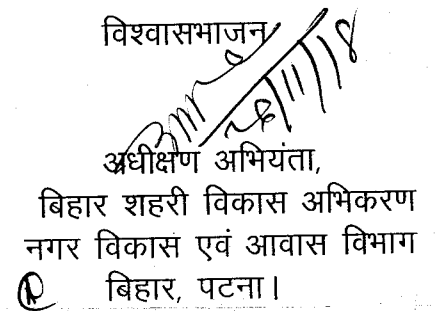 विश्वासभाजन
26/11/18
अधीक्षण अभियंता,
बिहार शहरी विकास अभिकरण
नगर विकास एवं आवास विभाग
बिहार, पटना।